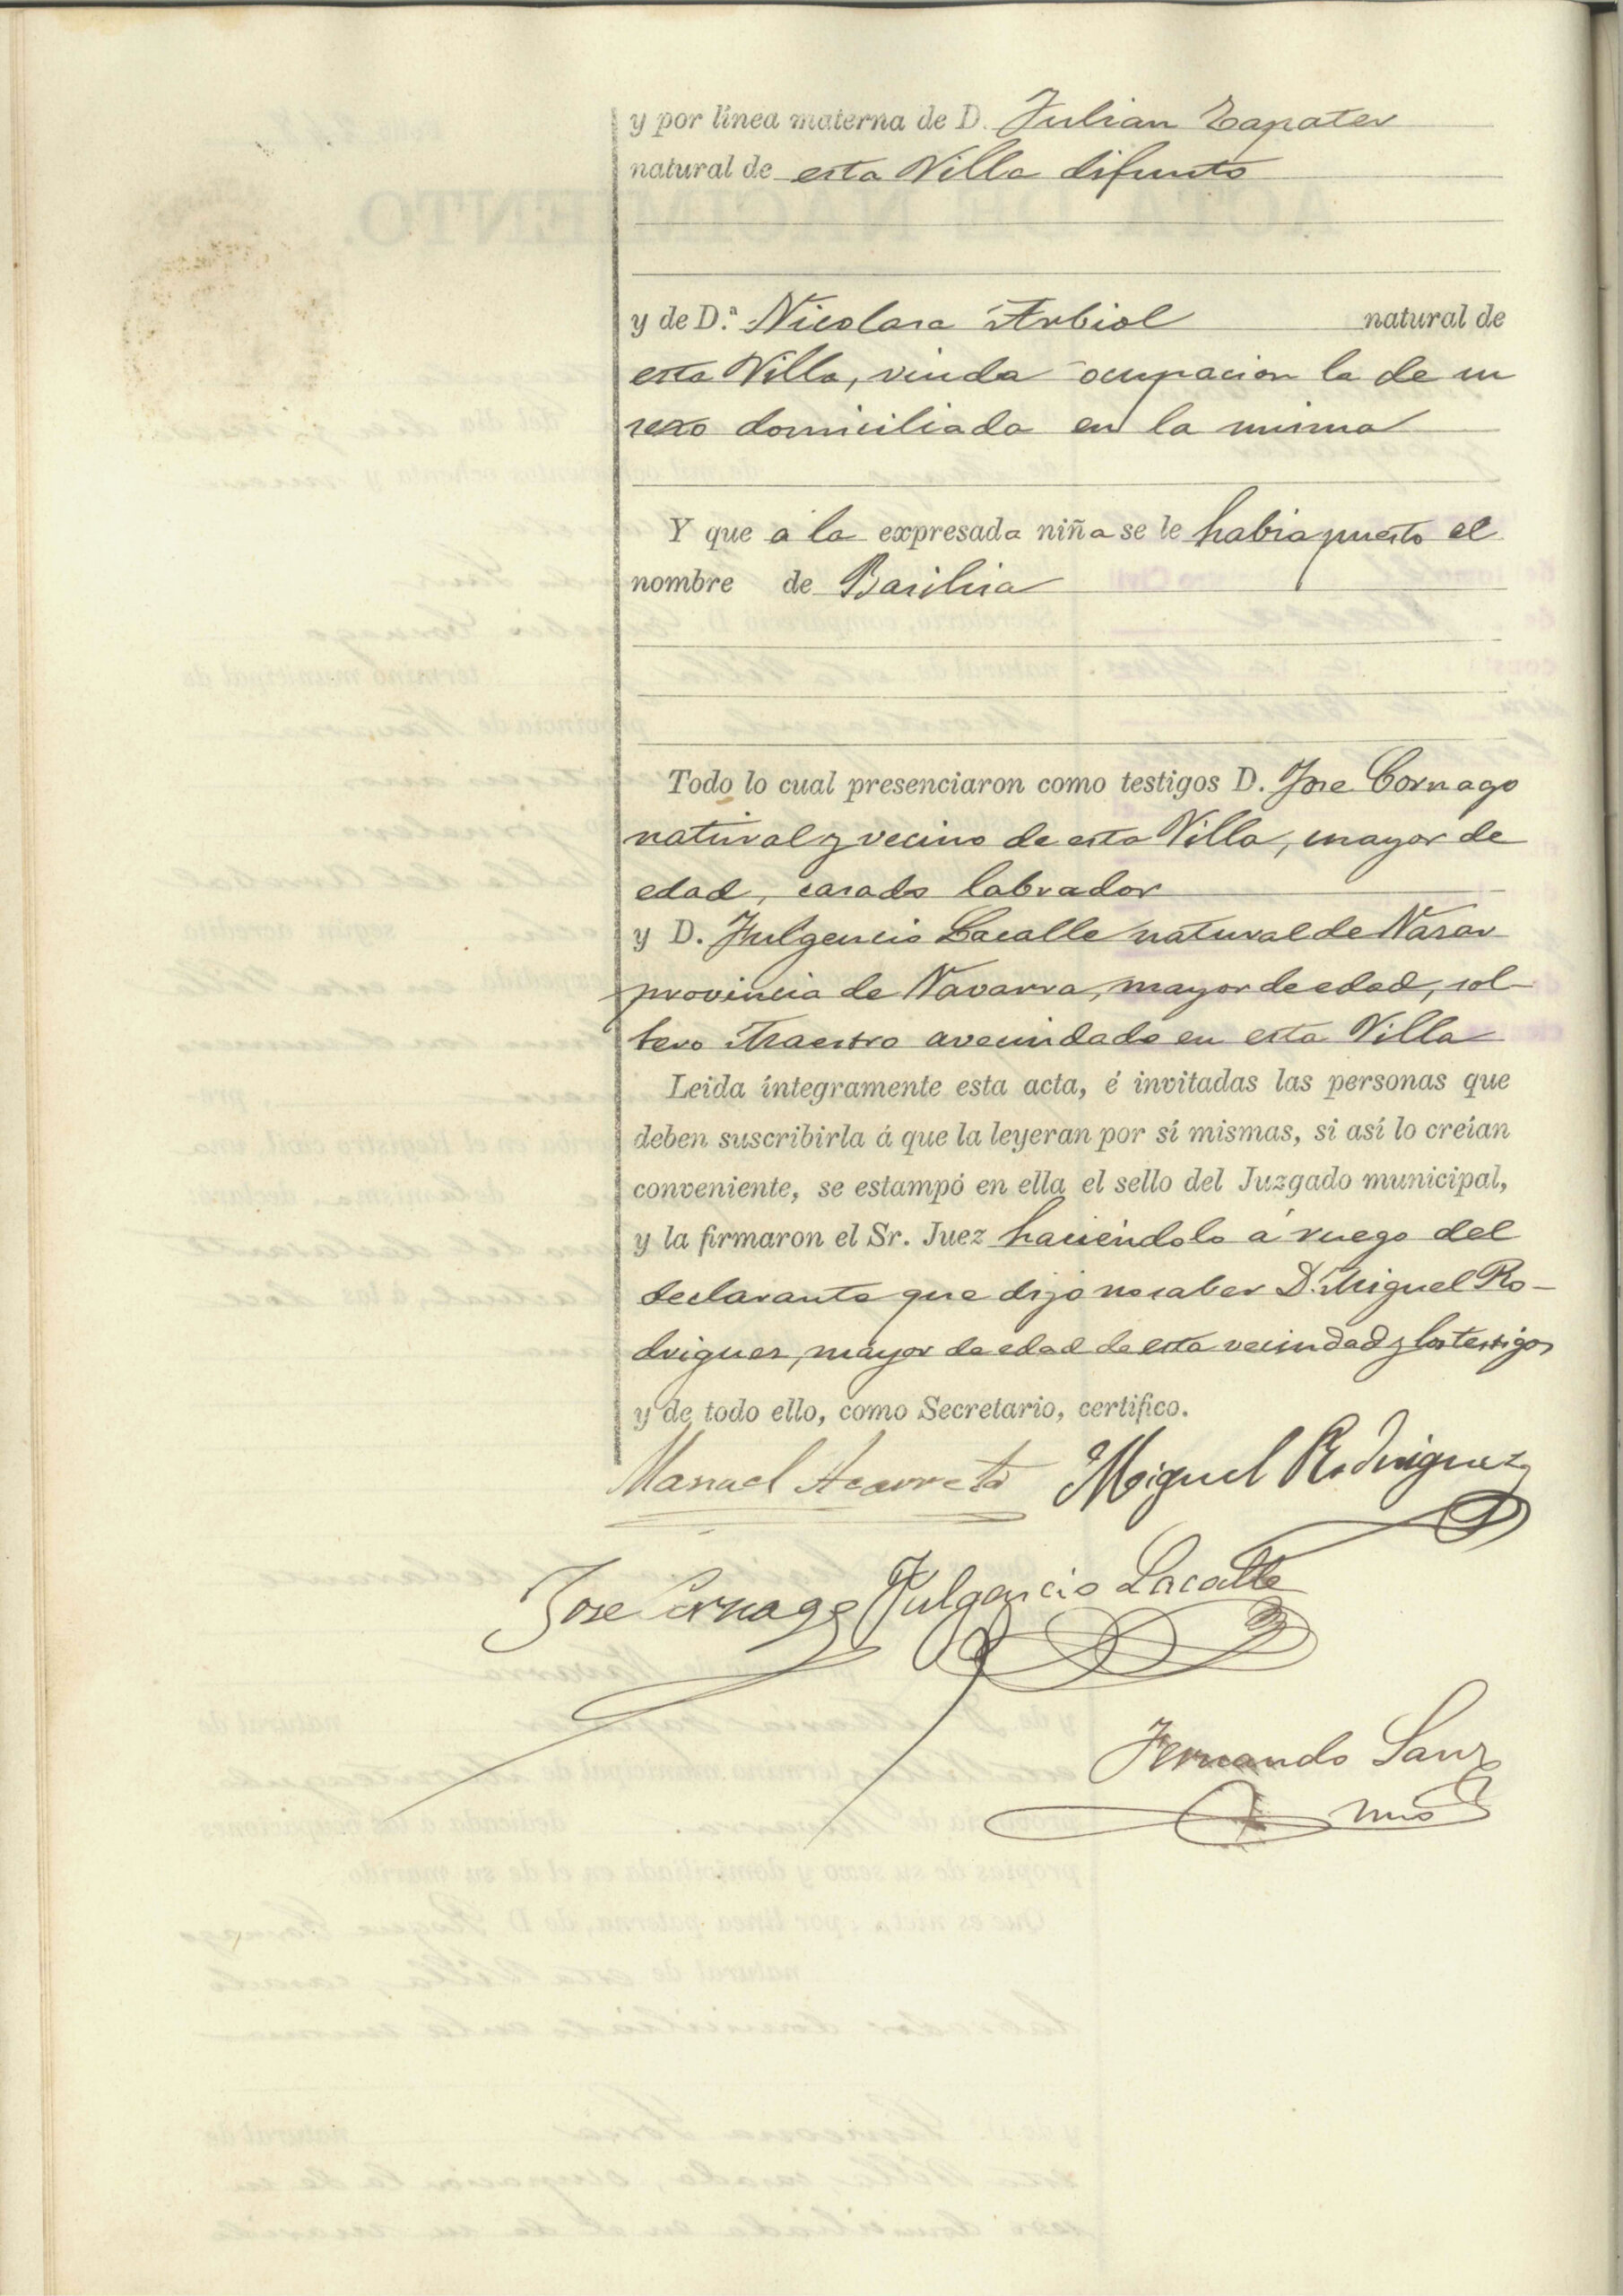 y por línea materna de D. Julian Zapater
natural de esta Villa difunto
y de D.ª Nicolasa Arbiol natural de
esta Villa, viuda ocupacion la de su
sexo domiciliada en la misma
Y que á la expresada niña se le habia puesto el
nombre de Basilisa
Todo lo cual presenciaron como testigos D. Jose Cornago
natural y vecino de esta Villa, mayor de
edad, casado labrador
y D. Fulgencio Lacalle natural de Nasar
provincia de Navarra, mayor de edad, sol-
tero Maestro avecindado en esta Villa
Leida íntegramente esta acta, é invitadas las personas que
deben suscribirla á que la leyeran por sí mismas, si así lo creían
conveniente, se estampó en ella el sello del Juzgado municipal,
y la firmaron el Sr. Juez haciéndolo á ruego del
declarante que dijo no saber D. Miguel Ro-
driguez, mayor de edad de esta vecindad y los testigos
y de todo ello, como Secretario, certifico.
Manuel Azarreta Miguel Rodriguez
Jose Cornago Fulgencio Lacalle
Fernando Sanz